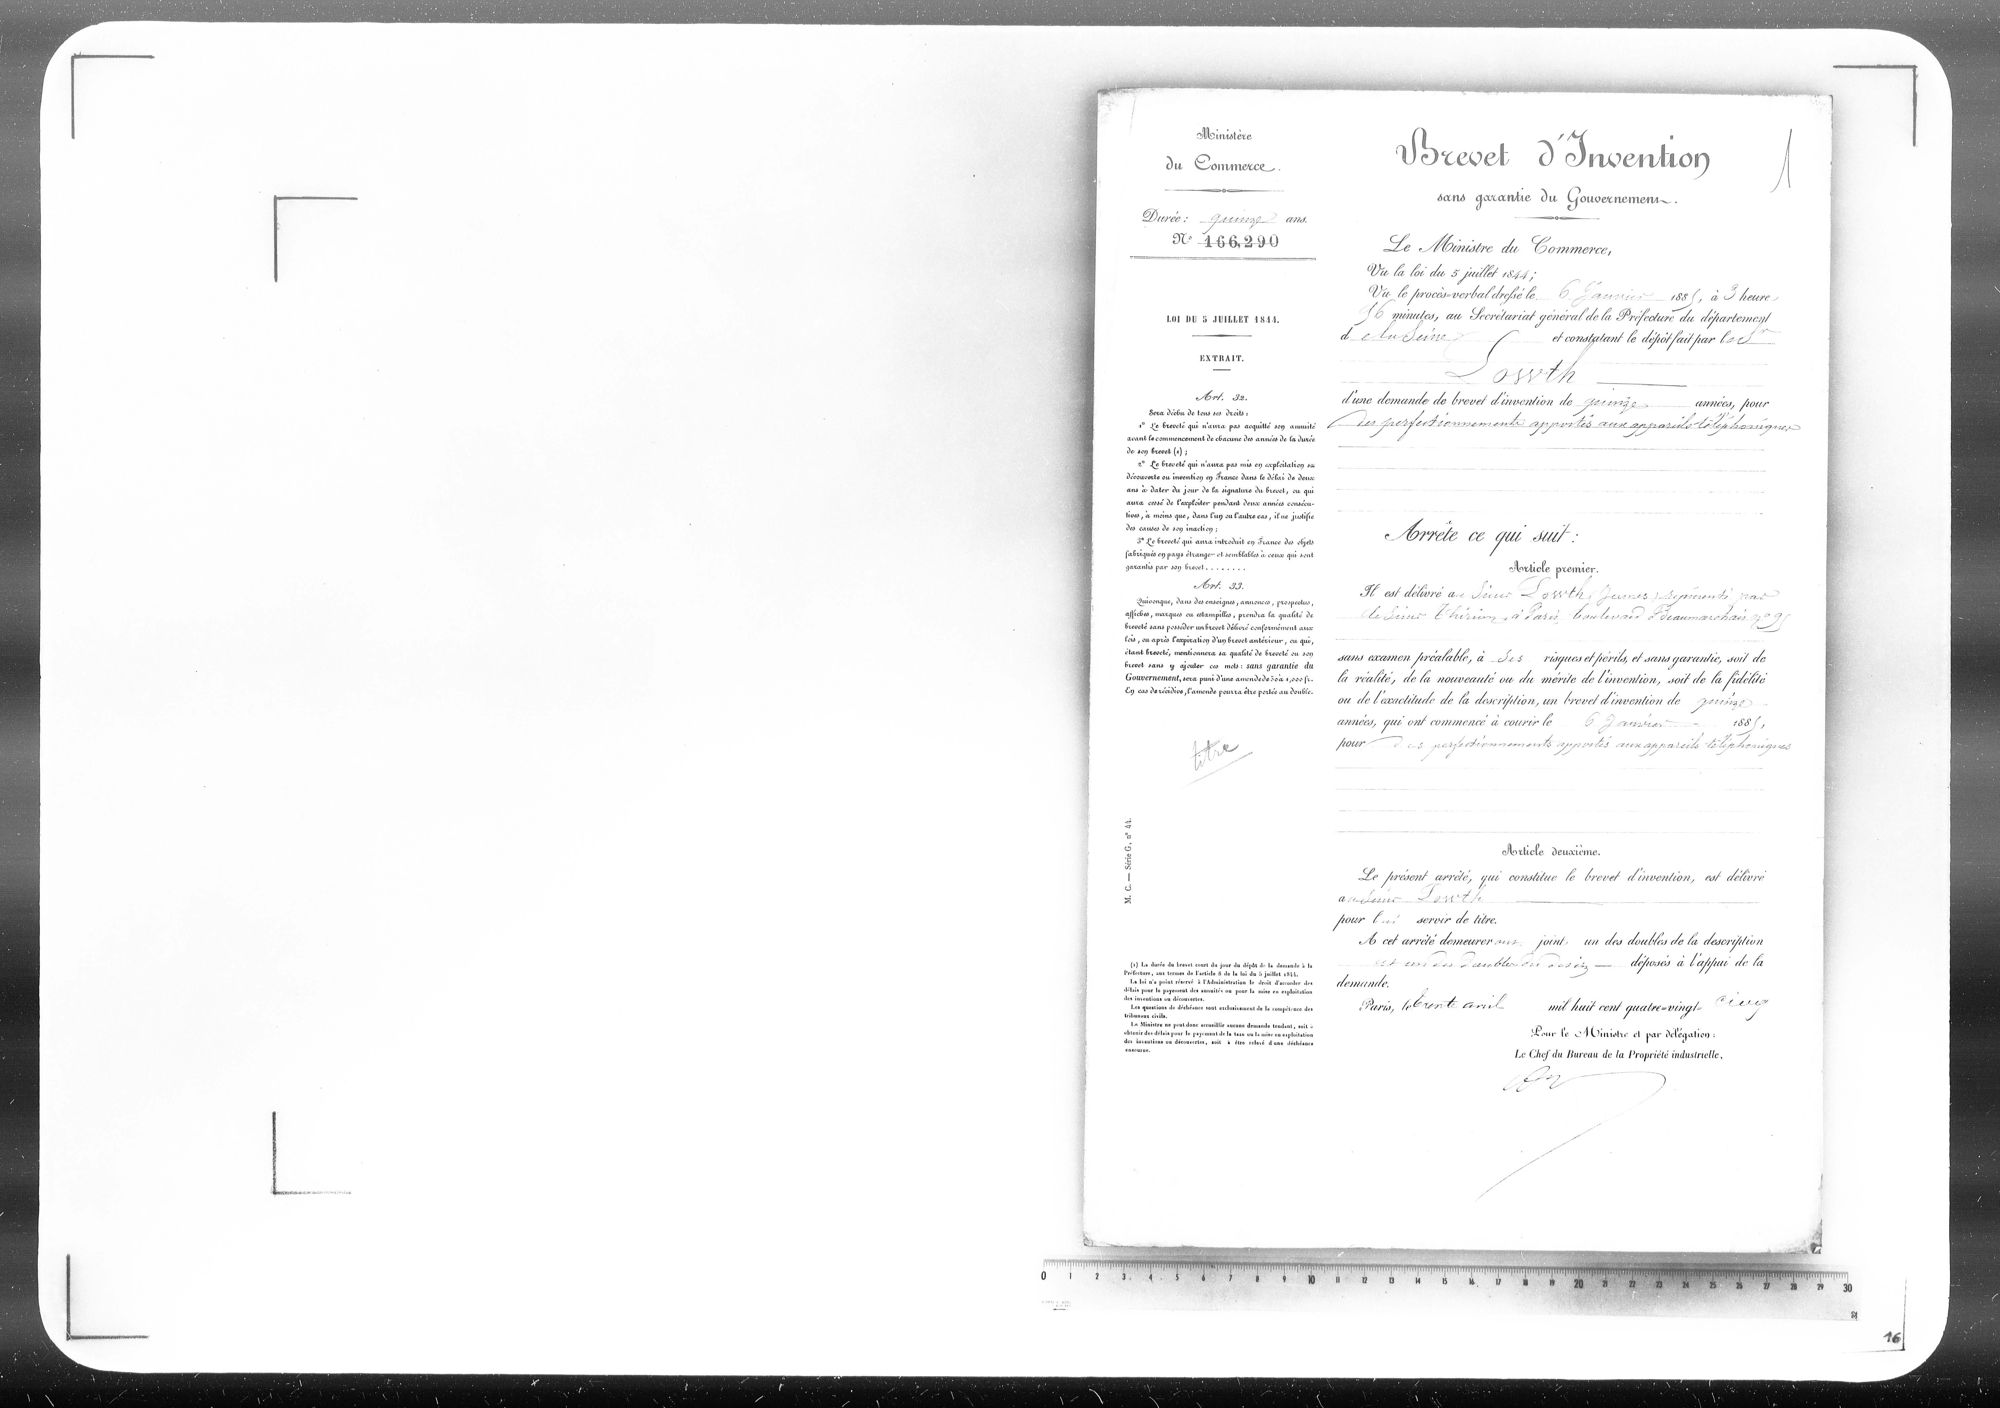 Ministère
du Commerce.
Durée : quinze ans.
N° 166,290
LOI DU 5 JUILLET 1844.
EXTRAIT.
Art. 32.
Sera déchu de tous ses droits :
1° Le breveté qui n'aura pas acquitté son annuité
avant le commencement de chacune des années de la durée
de son brevet (1) ;
2° Le breveté qui n'aura pas mis en exploitation sa
découverte ou invention en France dans le délai de deux
ans à dater du jour de la signature du brevet, ou qui
aura cessé de l'exploiter pendant deux années consécu-
tives, à moins que, dans l'un ou l'autre cas, il ne justifie
des causes de son inaction ;
3° Le breveté qui aura introduit en France des objets
fabriqués en pays étranger et semblables à ceux qui sont
garantis par son brevet........
Art. 33.
Quiconque, dans des enseignes, annonces, prospectus,
affiches, marques ou estampilles, prendra la qualité de
breveté sans posséder un brevet délivré conformément aux
lois, ou après l'expiration d'un brevet antérieur, ou qui,
étant breveté, mentionnera sa qualité de breveté ou son
brevet sans y ajouter ces mots : sans garantie du
Gouvernement, sera puni d'une amende de 50 à 1,000 fr.
En cas de récidive, l'amende pourra être portée au double.
titre
M. C. — Série G, n° 44.
(1) La durée du brevet court du jour du dépôt de la demande à la
Préfecture, aux termes de l'article 8 de la loi du 5 juillet 1844.
La loi n'a point réservé à l'Administration le droit d'accorder des
délais pour le payement des annuités ou pour la mise en exploitation
des inventions ou découvertes.
Les questions de déchéance sont exclusivement de la compétence des
tribunaux civils.
Le Ministre ne peut donc accueillir aucune demande tendant, soit à
obtenir des délais pour le payement de la taxe ou la mise en exploitation
des inventions ou découvertes, soit à être relevé d'une déchéance
encourue.
Brevet d'Invention
1
sans garantie du Gouvernement.
Le Ministre du Commerce,
Vu la loi du 5 juillet 1844 ;
Vu le procès-verbal dressé le 6 Janvier 1885, à 3 heures
56 minutes, au Secrétariat général de la Préfecture du département
de la Seine et constatant le dépôt fait par le Sr
Lowth
d'une demande de brevet d'invention de quinze années, pour
des perfectionnements apportés aux appareils téléphoniques
Arrête ce qui suit :
Article premier.
Il est délivré au Sieur Lowth, James, représenté par
le Sieur Thirion, à Paris, boulevard Beaumarchais, no 95
sans examen préalable, à ses risques et périls, et sans garantie, soit de
la réalité, de la nouveauté ou du mérite de l'invention, soit de la fidélité
ou de l'exactitude de la description, un brevet d'invention de quinze
années, qui ont commencé à courir le 6 Janvier 1885,
pour des perfectionnements apportés aux appareils téléphoniques
Article deuxième.
Le présent arrêté, qui constitue le brevet d'invention, est délivré
au Sieur Lowth
pour lui servir de titre.
A cet arrêté demeurera joint un des doubles de la description
et un des doubles du dessin déposés à l'appui de la
demande.
Paris, le trente avril mil huit cent quatre-vingt-cinq
Pour le Ministre et par délégation :
Le Chef du Bureau de la Propriété industrielle,
0 1 2 3 4 5 6 7 8 9 10 11 12 13 14 15 16 17 18 19 20 21 22 23 24 25 26 27 28 29 30
16